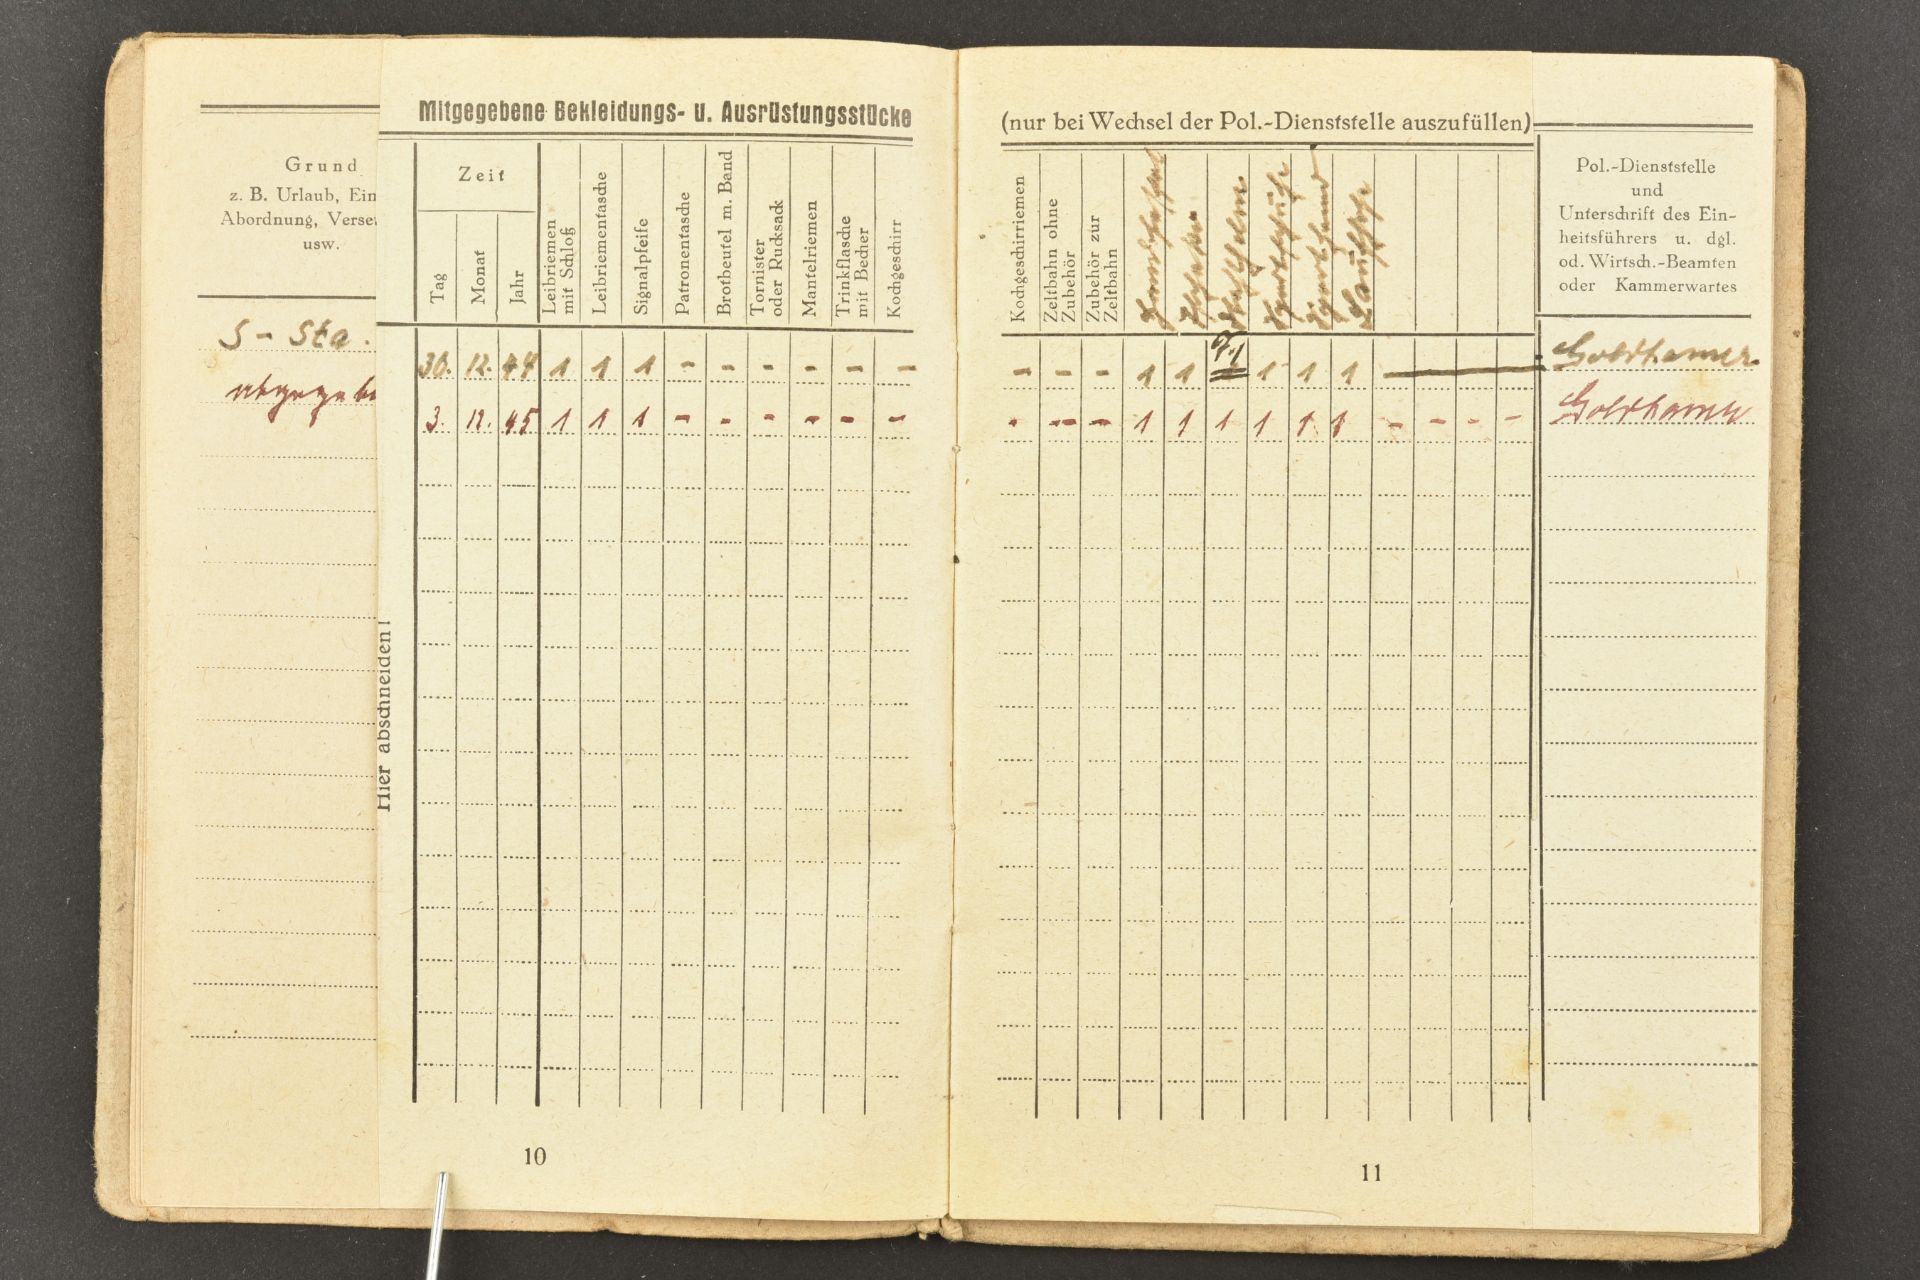 Grund
z. B. Urlaub, Ein
Abordnung, Verse
usw.
S - Sta.
Hier abschneiden!
Mitgegebene Bekleidungs- u. Ausrüstungsstücke
Zeit
Tag
Monat
Jahr
Leibriemen
mit Schloß
Leibriementasche
Signalpfeife
Patronentasche
Brotbeutel m. Band
Tornister
oder Rucksack
Mantelriemen
Trinkflasche
mit Becher
Kochgeschirr
30. 12. 44 1 1 1 - - - - - -
3. 12. 45 1 1 1 - - - - - -
10
(nur bei Wechsel der Pol.-Dienststelle auszufüllen)
Kochgeschirriemen
Zeltbahn ohne
Zubehör
Zubehör zur
Zeltbahn
Pol.-Dienststelle
und
Unterschrift des Ein-
heitsführers u. dgl.
od. Wirtsch.-Beamten
oder Kammerwartes
- - - 1 1 1 1 1
- - - 1 1 1 1 1 1 - - - -
11